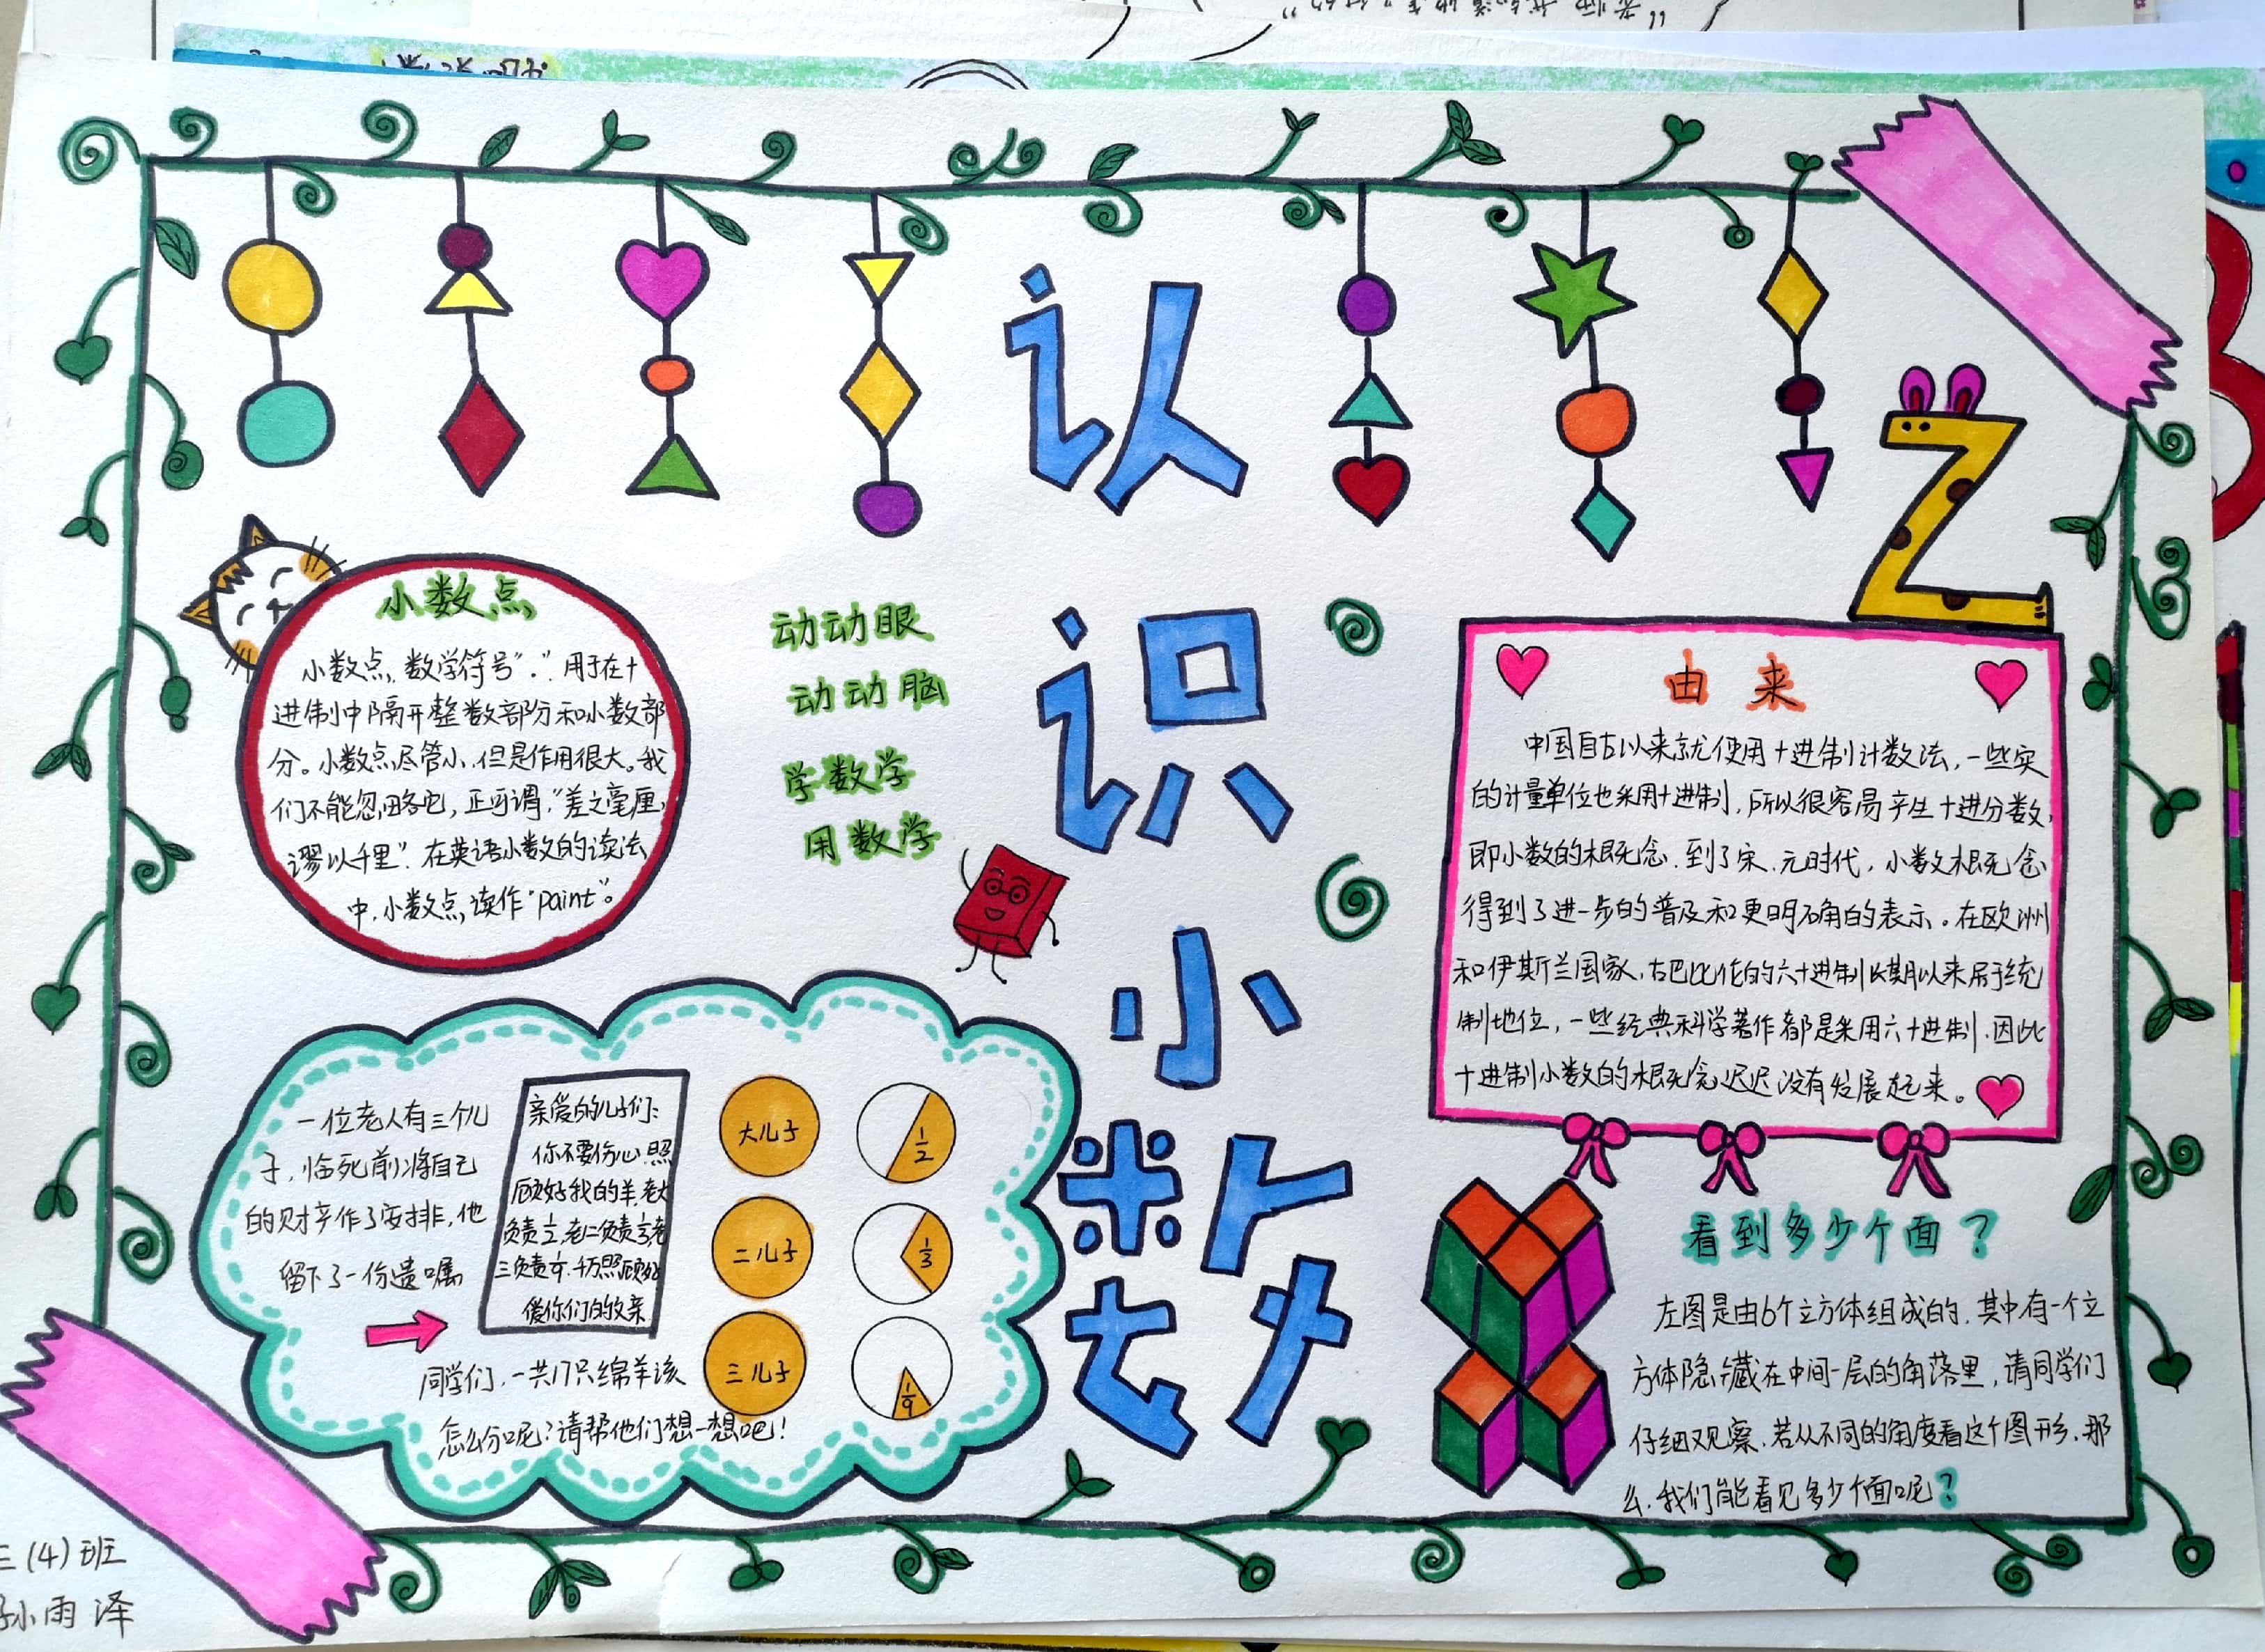 认识小数
小数点
小数点，数学符号“.”，用于在十
进制中隔开整数部分和小数部
分。小数点尽管小，但是作用很大。我
们不能忽略它，正可谓，“差之毫厘，
谬以千里”．在英语小数的读法
中，小数点读作“paint”。
动动眼
动动脑
学数学
用数学
由来
中国自古以来就使用十进制计数法，一些实
的计量单位也采用十进制，所以很容易产生十进分数，
即小数的概念．到了宋．元时代，小数概念
得到了进一步的普及和更明确的表示。在欧洲
和伊斯兰国家，古巴比伦的六十进制长期以来居于统
制地位，一些经典科学著作都是采用六十进制．因此
十进制小数的概念迟迟没有发展起来。
一位老人有三个儿
子，临死前将自己
的财产作了安排，他
留下了一份遗嘱
亲爱的儿子们：
你不要伤心．照
顾好我的羊，老大
负责½，老二负责⅓，老
三负责⅑．千万照顾好
爱你们的父亲
大儿子
1/2
二儿子
1/3
三儿子
1/9
同学们，一共17只绵羊该
怎么分呢？请帮他们想一想吧！
看到多少个面？
左图是由6个立方体组成的．其中有一个立
方体隐藏在中间一层的角落里，请同学们
仔细观察．若从不同的角度看这个图形，那
么．我们能看见多少个面呢？
三（4）班
孙雨泽